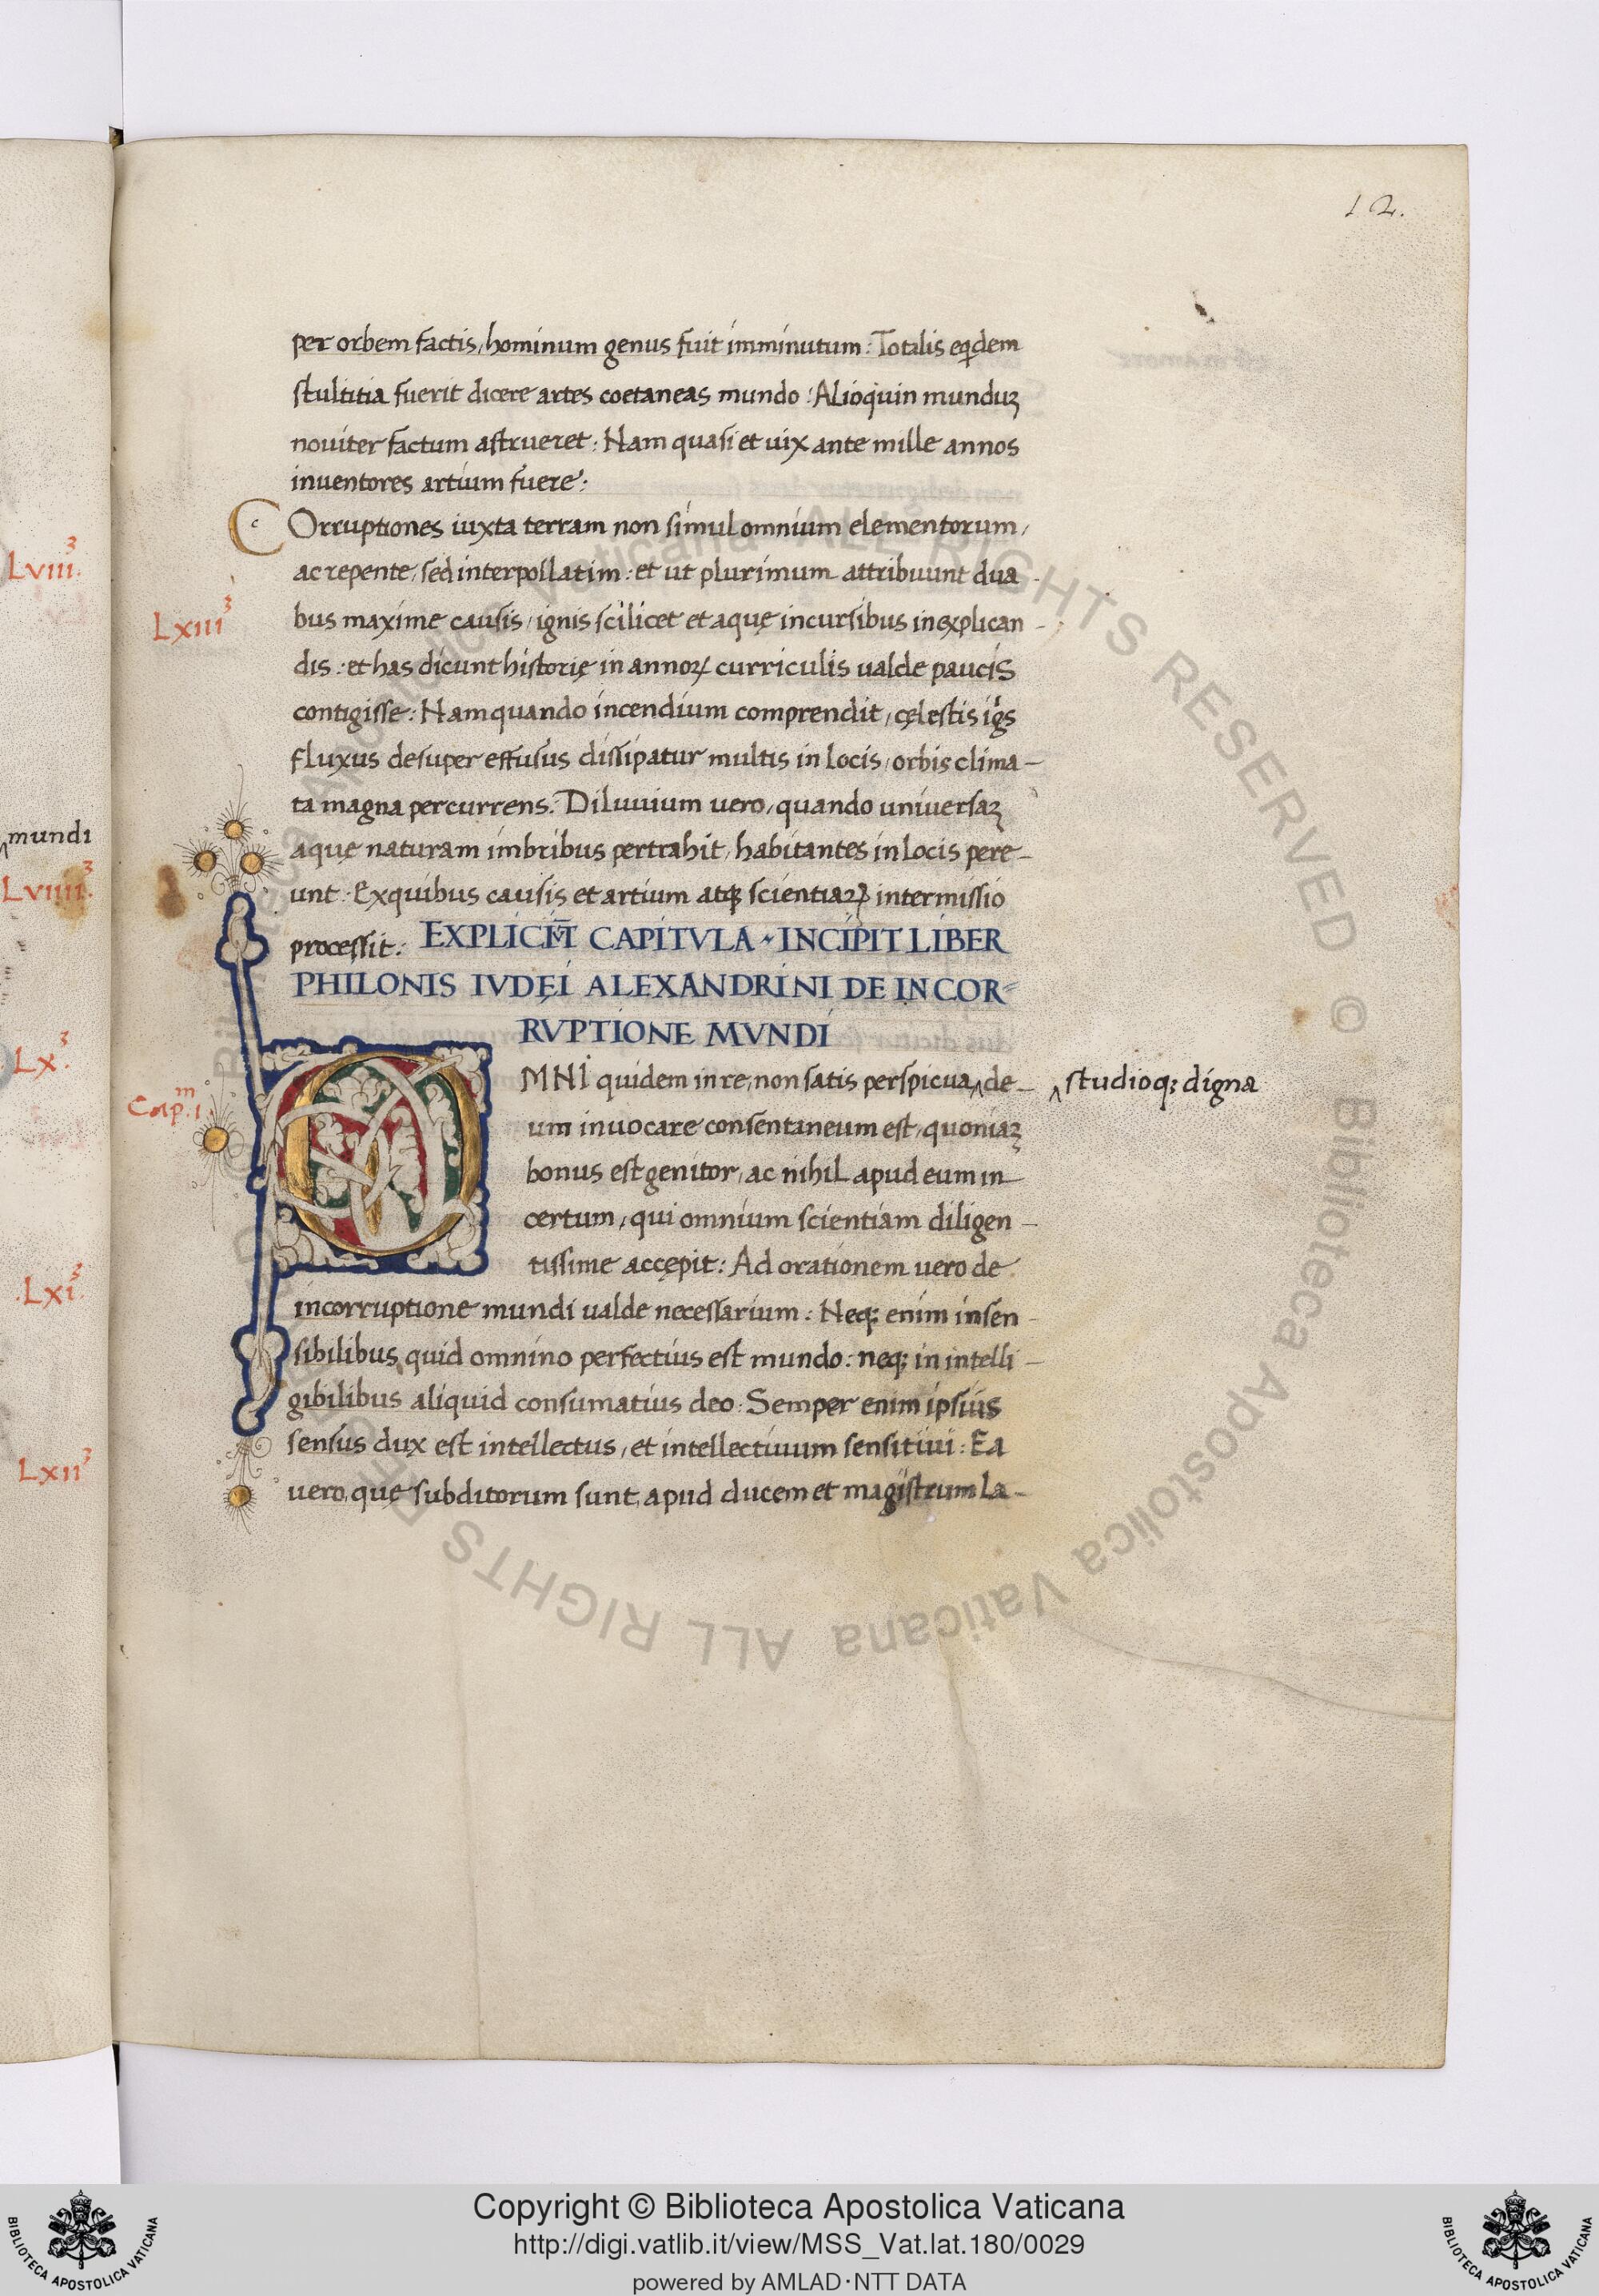 12.
per orbem factis, hominum genus fuit imminutum: Totalis eqdem
stultitia fuerit dicere artes coetaneas mundo: Alioquin munduꝫ
noviter factum astrueret: Nam quasi et uix ante mille annos
inventores artium fuere:
Corruptiones iuxta terram non simul omnium elementorum,
ac repente, sed interpollatim: et ut plurimum attribuunt dua-
bus maxime causis, ignis scilicet et aquę incursibus inexplican-
dis: et has dicunt historię in annoꝝ curriculis valde paucis
contigisse: Nam quando incendium comprendit, cęlestis igs
fluxus desuper effusus dissipatur multis in locis, orbis clima-
ta magna percurrens: Diluvium vero, quando universaꝫ
aquę naturam imbribus pertrahit, habitantes in locis pere-
unt: Ex quibus causis et artium atqꝫ scientiaꝝ intermissio
processit: EXPLICIVT CAPITVLA INCIPIT LIBER
PHILONIS IVDĘI ALEXANDRINI DE INCOR-
RVPTIONE MVNDI
OMNI quidem in re, non satis perspicua, de-
um invocare consentaneum est, quoniaꝫ
bonus est genitor, ac nihil apud eum in-
certum, qui omnium scientiam diligen-
tissime accępit: Ad orationem vero de
incorruptione mundi valde necessarium: Neqꝫ enim in sen-
sibilibus quid omnino perfectius est mundo: neqꝫ in intelli-
gibilibus aliquid consumatius deo: Semper enim ipsius
sensus dux est intellectus, et intellectivum sensitivi: Ea
vero, quę subditorum sunt, apud ducem et magistrum la-
studioqꝫ digna
Lxiii³
Cap.m i.
Lviii³.
mundi
Lviiii³.
Lx³.
.Lxi³.
Lxii³
© Biblioteca Apostolica Vaticana ALL RIGHTS RESERVED
Copyright © Biblioteca Apostolica Vaticana
http://digi.vatlib.it/view/MSS_Vat.lat.180/0029
powered by AMLAD·NTT DATA
BIBLIOTECA APOSTOLICA VATICANA
BIBLIOTECA APOSTOLICA VATICANA